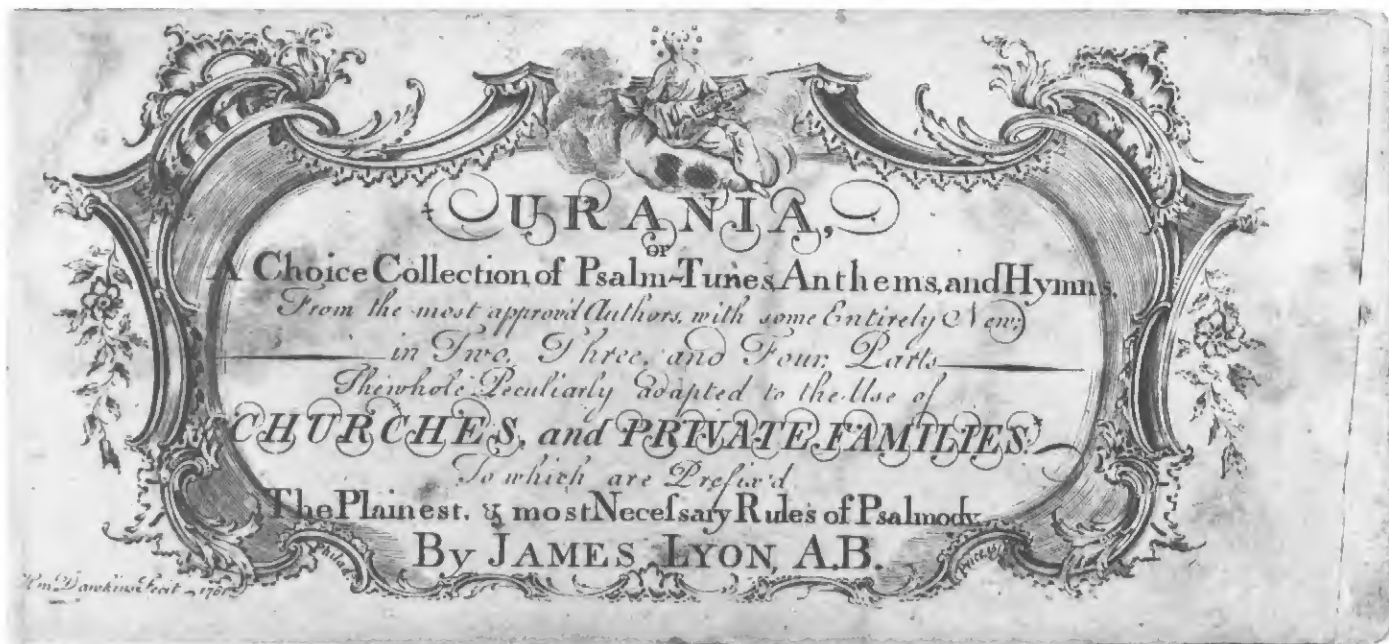 URANIA,
or
A Choice Collection of Psalm-Tunes, Anthems, and Hymns,
From the most approv'd Authors, with some Entirely New;
in Two, Three, and Four, Parts
The whole Peculiarly adapted to the Use of
CHURCHES, and PRIVATE FAMILIES.
To which are Prefix'd
The Plainest, & most Neceſsary Rules of Psalmody.
By JAMES LYON, A.B.
Philad.
Hen. Dawkins Fecit 1761